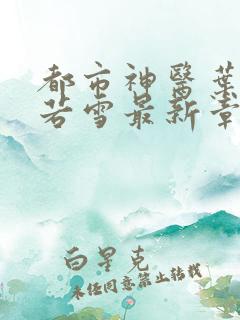 都市神医葉
若雪最新章
白星克
未经同意禁止转载